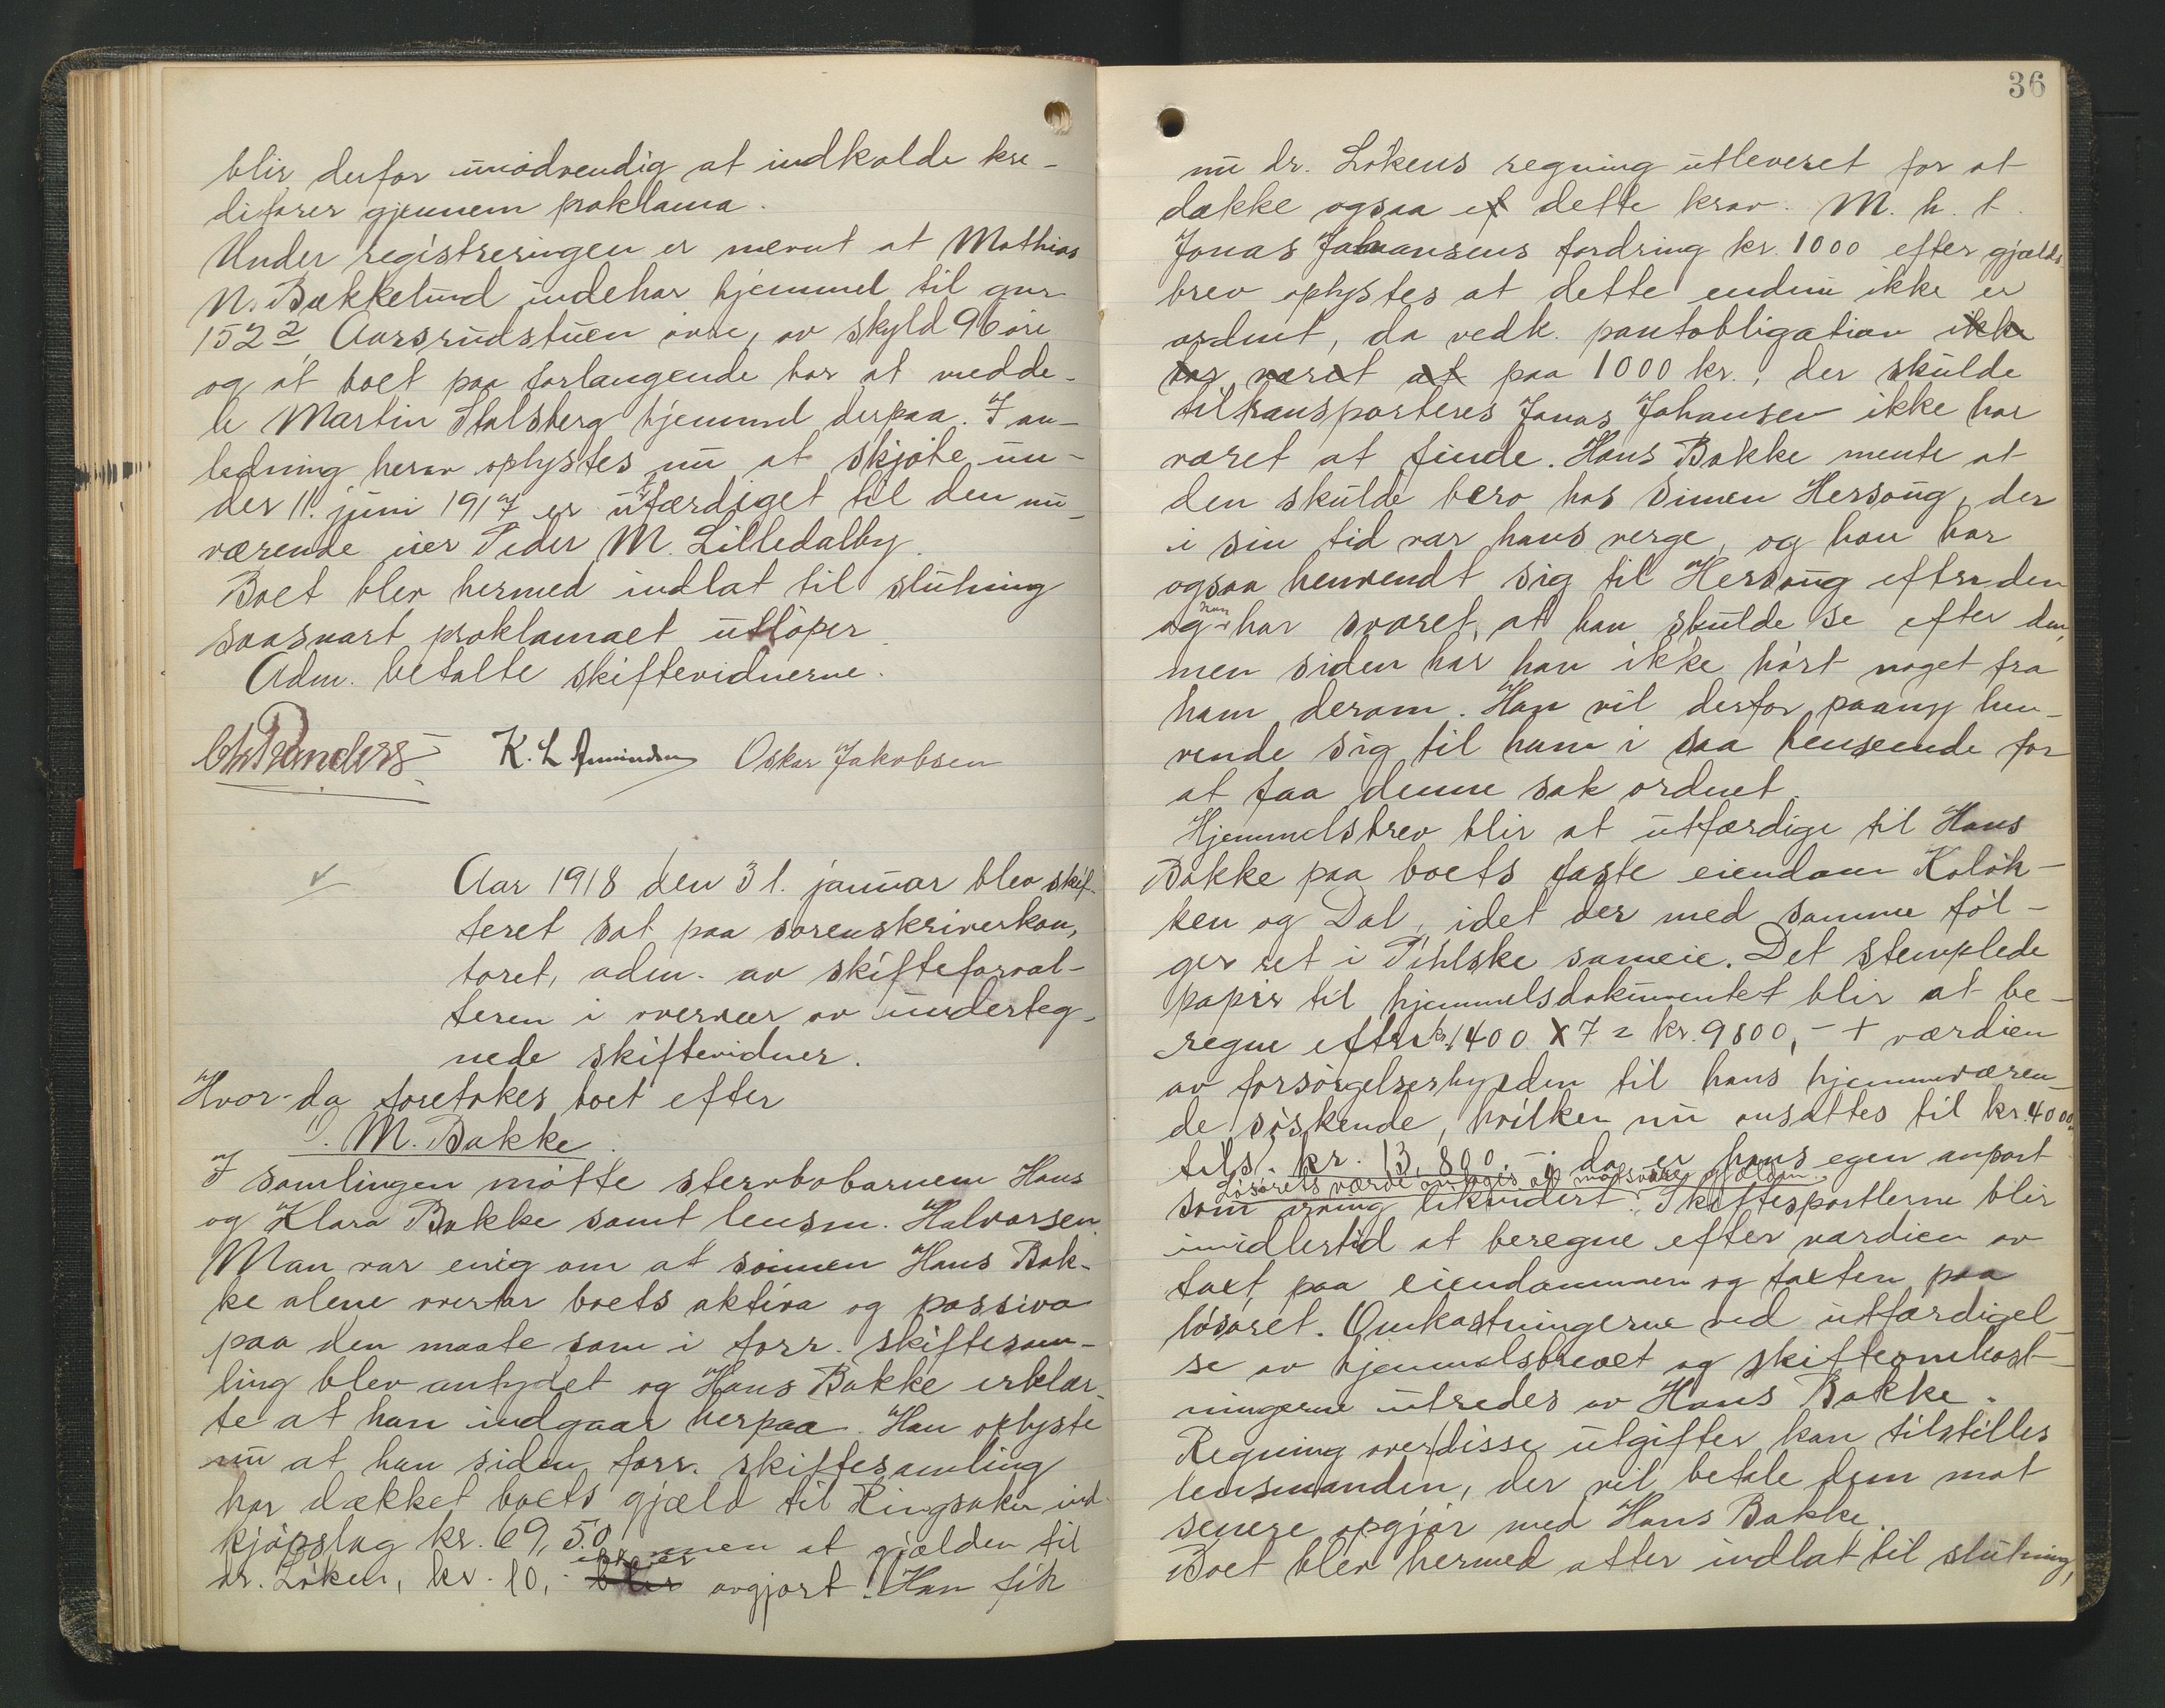 blir derfor unødvendig at indkalde kre-
ditorer gjennem proklama.
Under registreringen er nævnt at Mathias
N. Bækkelund indehar hjemmel til gnr
152 2 Aarsrudstuen øvre, av skyld 96 øre
og at boet paa forlangende har at medde-
le Martin Stalsberg hjemmel derpaa. I an-
ledning herav oplystes nu at skjøte un-
der 11. juni 1917 er utfærdiget til den nu-
værende eier Peder M. Lilledalby.
Boet blev hermed indlat til slutning
saasnart proklamaet utløper.
Adm. betalte skiftevidnerne.
K. L. Amundsen Oskar Jakobsen
Aar 1918 den 31. januar blev skif-
teret sat paa sorenskriverkon-
toret, adm. av skifteforval-
teren i overvær av underteg-
nede skiftevidner.
Hvor da foretokes boet efter
1). M. Bakke.
I samlingen møtte stervbobarnene Hans
og Klara Bakke samt lensm. Halvorsen.
Man var enig om at sønnen Hans Bak-
ke alene overtar boets aktiva og passiva
paa den maate som i forr. skiftesam-
ling blev antydet og Hans Bakke erklær-
te at han indgaar herpaa. Han oplyste
nu at han siden forr. skiftesamling
har dækket boets gjæld til Ringsaker ind-
kjøpslag kr. 69,50 men at gjælden til
dr. Løken, kr. 10,- ikke er blir avgjort. Han fik
36
nu dr. Løkens regning utleveret for at
dække ogsaa et dette krav. M. h. t.
Jonas Johansens fordring kr. 1000 efter gjælds-
brev oplystes at dette endnu ikke er
ordnet, da vedk. pantobligation ikke
har været at paa 1000 kr., der skulde
tiltransporteres Jonas Johansen ikke har
været at finde. Hans Bakke mente at
den skulde bero hos Simen Hersoug, der
i sin tid var hans verge, og han har
ogsaa henvendt sig til Hersoug efter den
og han har svaret, at han skulde se efter den,
men siden har han ikke hørt noget fra
ham derom. Han vil derfor paany hen-
vende sig til ham i saa henseende for
at faa denne sak ordnet.
Hjemmelsbrev blir at utfærdige til Hans
Bakke paa boets faste eiendom Koløk-
ken og Dal, idet der med samme føl-
ger ret i Pihlske sameie. Det stemplede
papir til hjemmelsdokumentet blir at be-
regne efter kr. 1400 x 7 = kr. 9800,- + værdien
av forsørgelsesbyrden til hans hjemmeværen-
de søskende, hvilken nu ansattes til kr. 4000,
tils. kr. 13,800.- i da er hans egen anpart
Løsørets værdi antages at motsvare gjælden.
som arving likvidert. Skifteportlerne blir
imidlertid at beregne efter værdien av
taxt paa eiendommen og taxten paa
løsøret. Omkostningerne ved utfærdigel-
se av hjemmelsbrevet og skifteomkost-
ningerne utredes av Hans Bakke.
Regning over disse utgifter kan tilstilles
lensmanden, der vil betale dem mot
senere opgjør med Hans Bakke.
Boet blev hermed atter indlat til slutning,